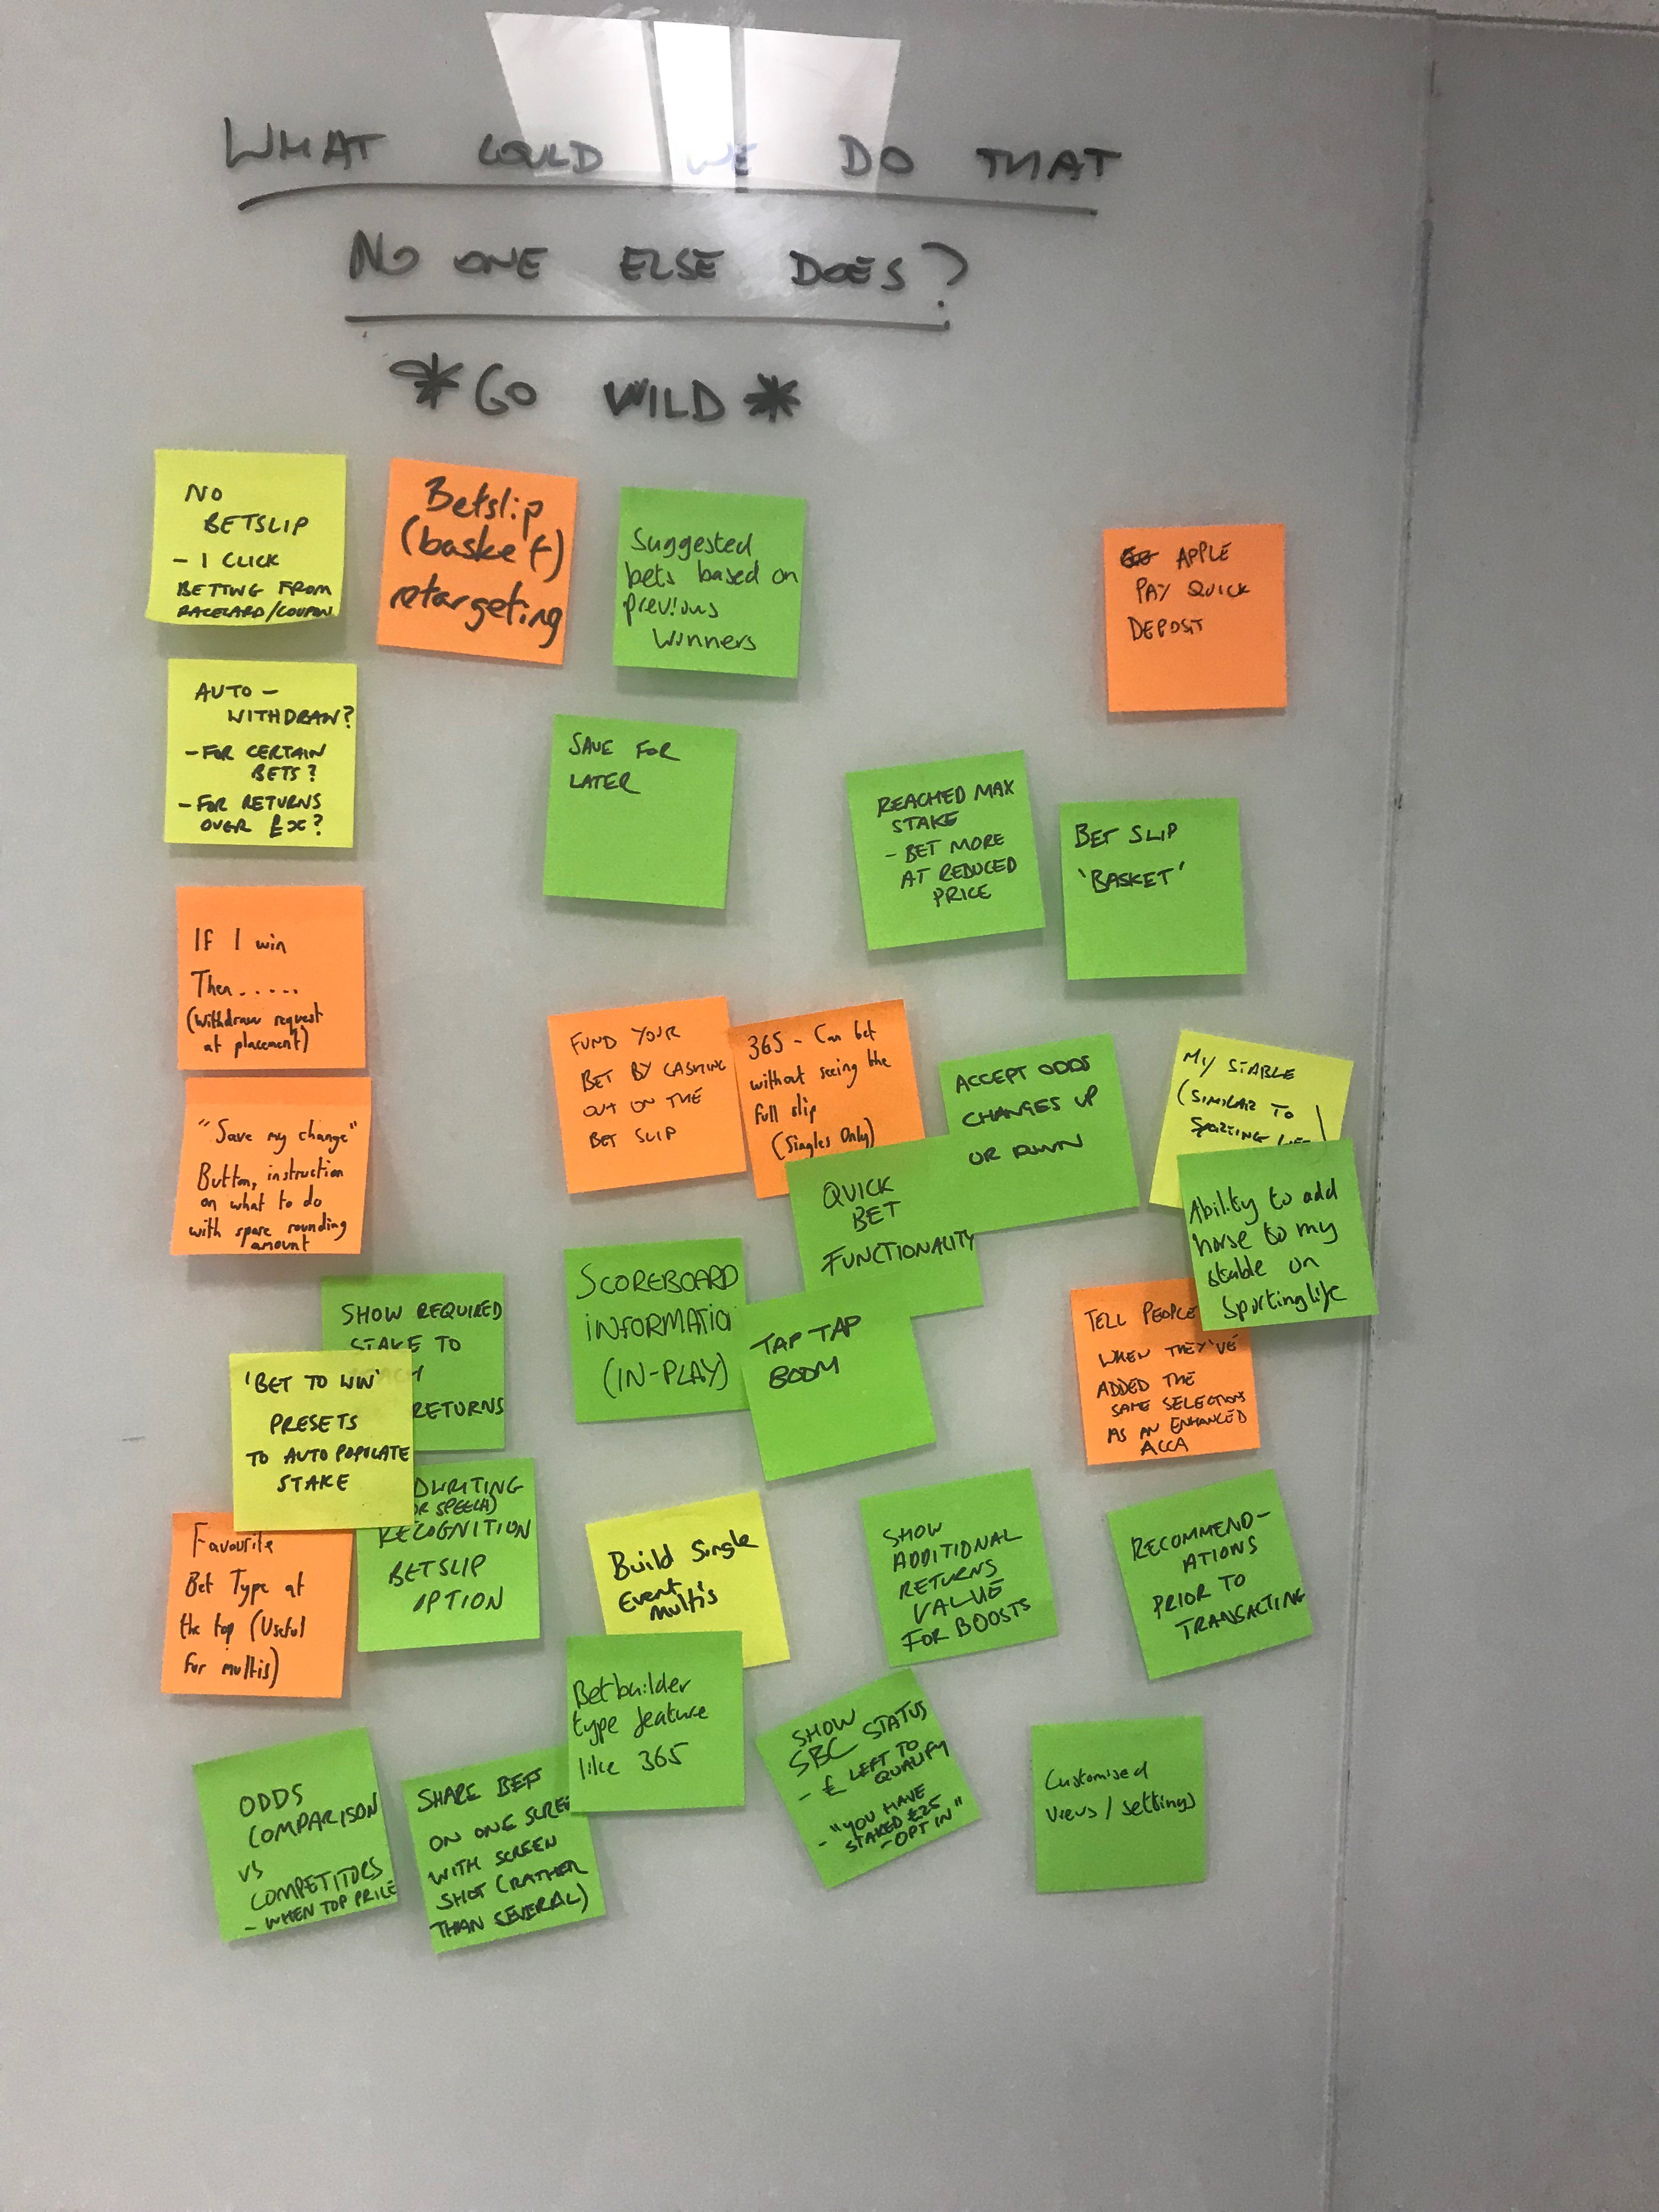 WHAT COULD WE DO THAT
NO ONE ELSE DOES?
*GO WILD*
NO
BETSLIP
- 1 CLICK
BETTING FROM
RACECARD/COUPON
Betslip
(basket)
retargeting
Suggested
bets based on
previous
Winners
APPLE
PAY QUICK
DEPOSIT
AUTO -
WITHDRAW?
- FOR CERTAIN
BETS?
- FOR RETURNS
OVER £x?
SAVE FOR
LATER
REACHED MAX
STAKE
- BET MORE
AT REDUCED
PRICE
BET SLIP
'BASKET'
If I win
Then.....
(Withdraw request
at placement)
FUND YOUR
BET BY CASHING
OUT ON THE
BET SLIP
365 - Can bet
without seeing the
full slip
(Singles Only)
ACCEPT ODDS
CHANGES UP
OR DOWN
MY STABLE
(SIMILAR TO
SPORTING
"Save my change"
Button, instruction
on what to do
with spare rounding
amount
QUICK
BET
FUNCTIONALITY
Ability to add
horse to my
stable on
Sportinglife
SHOW REQUIRED
STAKE TO
RETURNS
'BET TO WIN'
PRESETS
TO AUTO POPULATE
STAKE
SCOREBOARD
INFORMATIO
(IN-PLAY)
TAP TAP
BOOM
TELL PEOPLE
WHEN THEY'VE
ADDED THE
SAME SELECTIONS
AS AN ENHANCED
ACCA
Favourite
Bet Type at
the top (Useful
for multis)
DWRITING
OR SPEECH)
RECOGNITION
BETSLIP
OPTION
Build Single
Event
Multis
SHOW
ADDITIONAL
RETURNS
VALUE
FOR BOOSTS
RECOMMEND-
ATIONS
PRIOR TO
TRANSACTING
Betbuilder
type feature
like 365
ODDS
COMPARISON
VS
COMPETITORS
- WHEN TOP PRICE
SHARE BET
ON ONE SCREE
WITH SCREEN
SHOT (RATHER
THAN SEVERAL)
SHOW
SBC STATUS
- £ LEFT TO
QUALIFY
- "YOU HAVE
STAKED £25
- OPT IN"
Customised
Views / settings